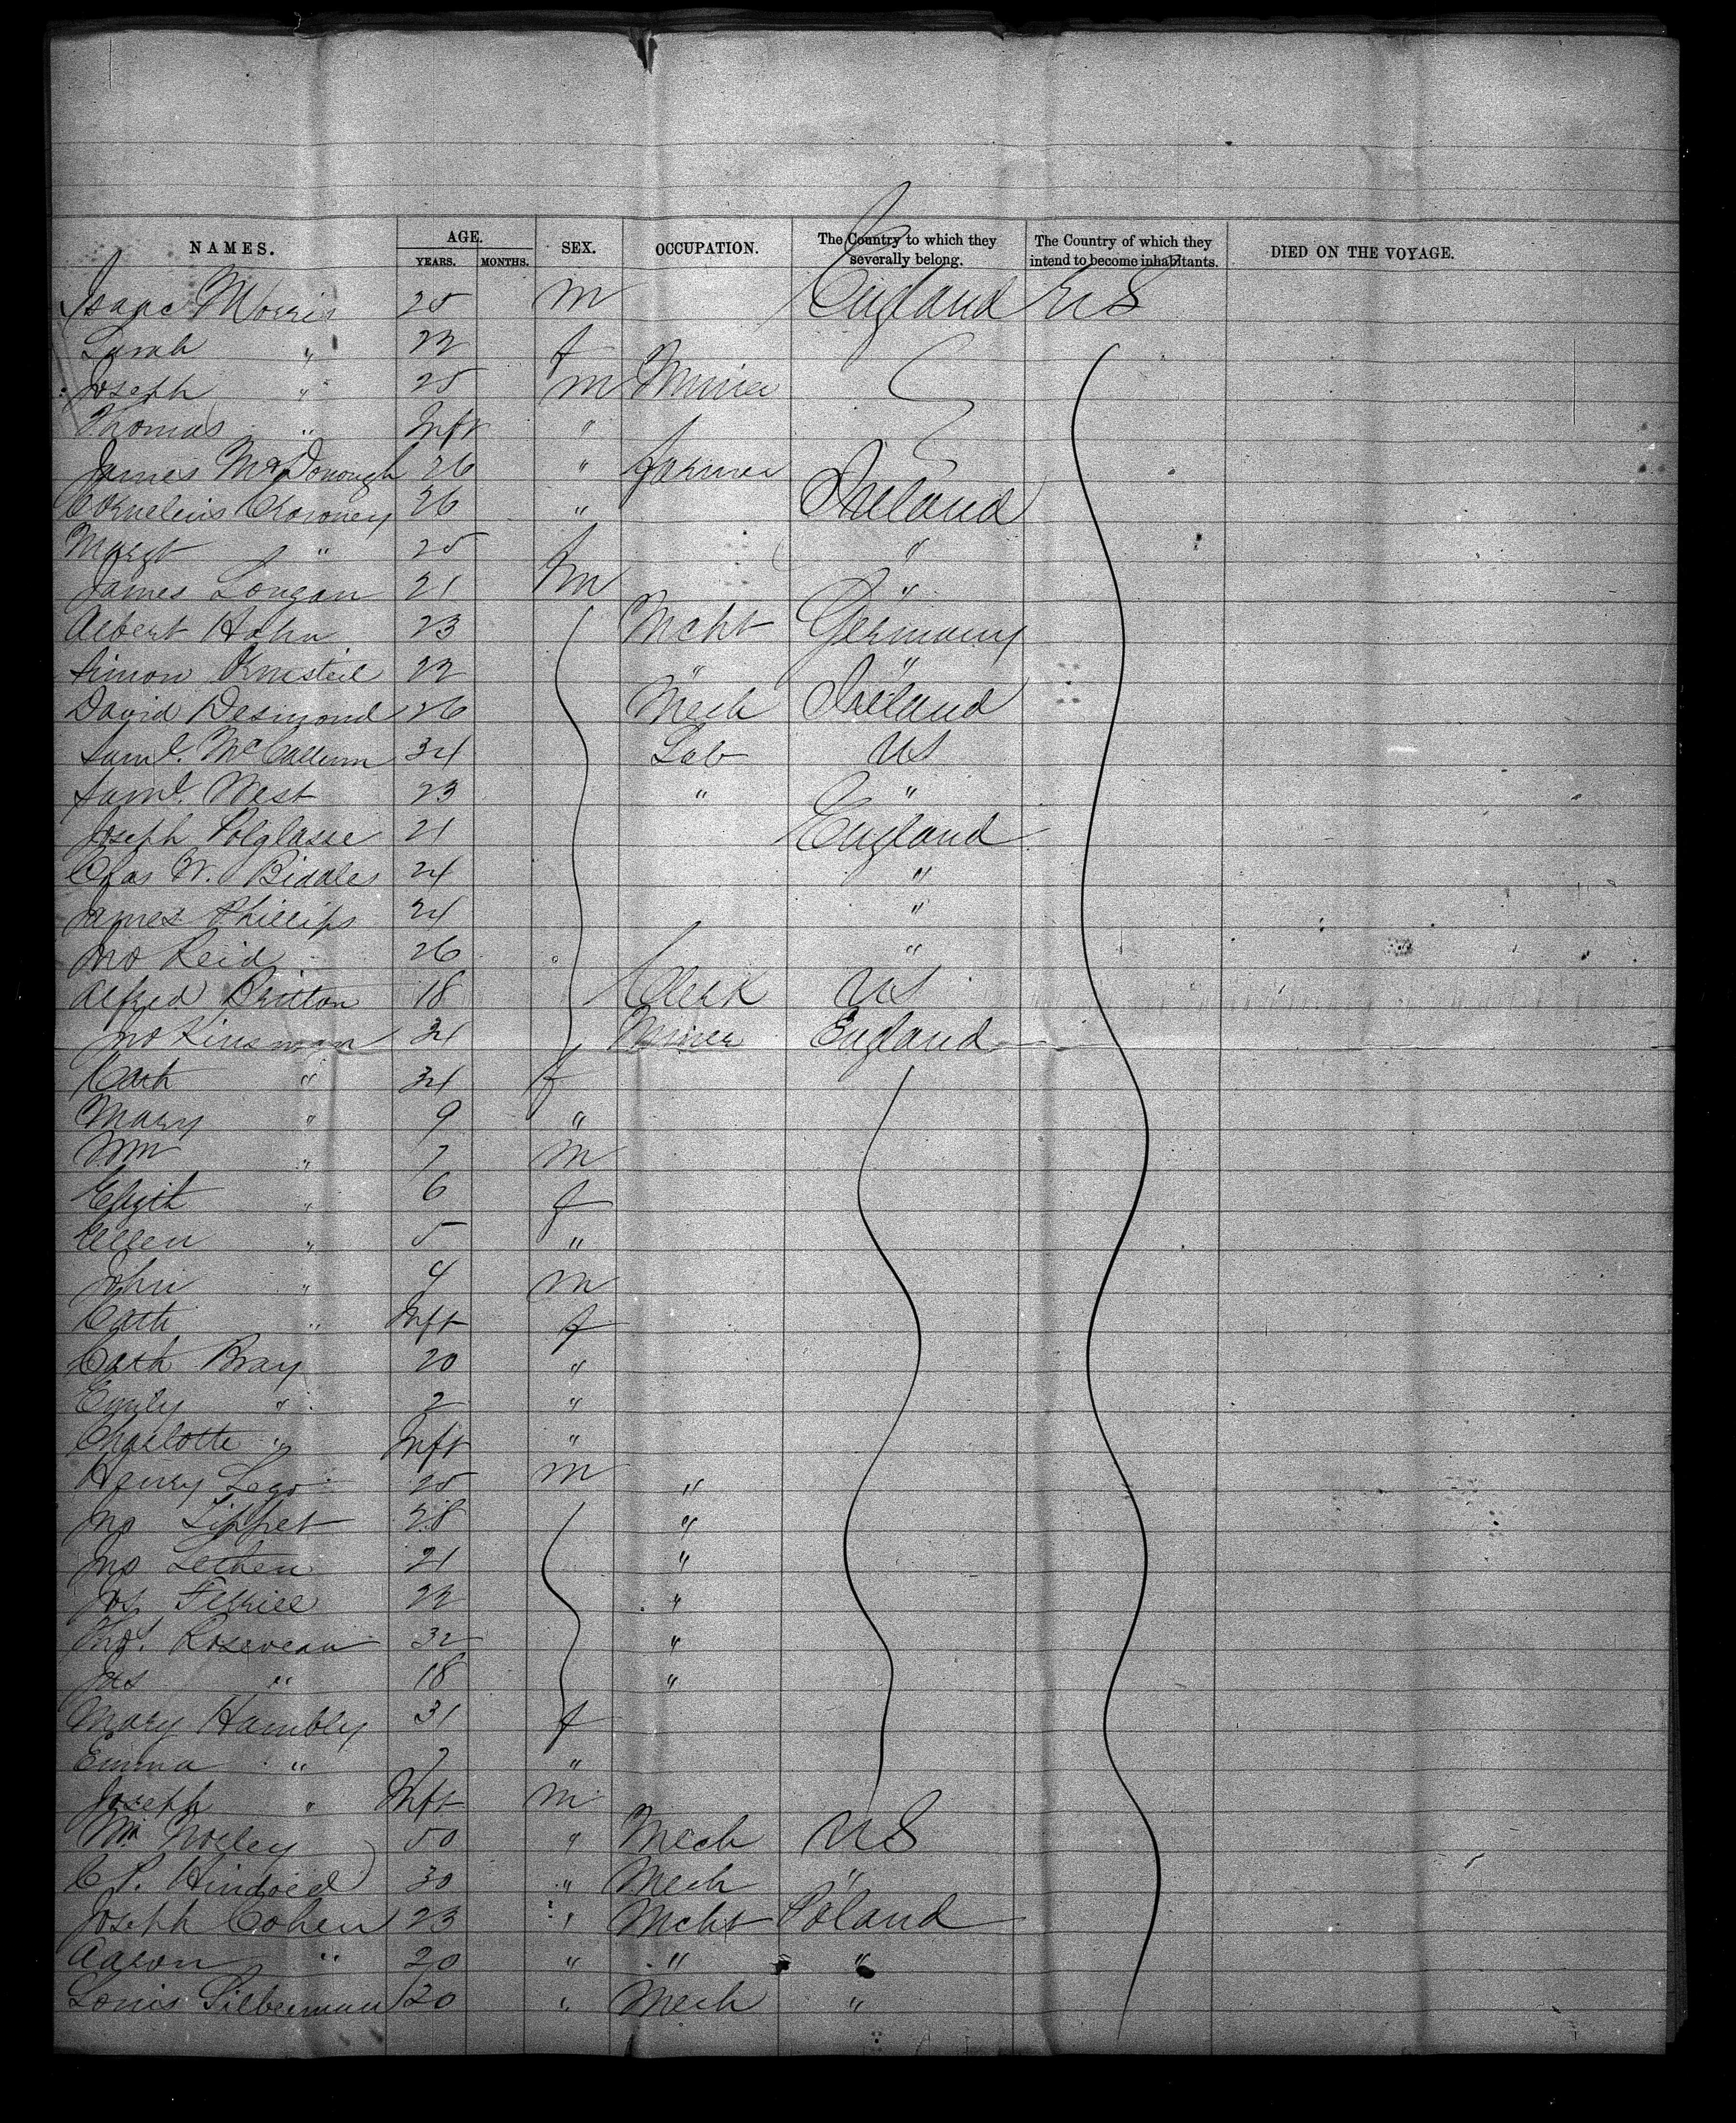 NAMES. AGE. YEARS. MONTHS. SEX. OCCUPATION. The Country to which they severally belong. The Country of which they intend to become inhabitants. DIED ON THE VOYAGE.
Isaac Morris 25 m England US
Sarah " 22 f
Joseph " 25 m Miner
Thomas " Inft "
James McDonough 26 " farmer
Cornelius 26 " Ireland
Margt " 25 f "
James Longan 21 m "
Albert Hahn 23 Mcht Germany
Simon 22 " "
David Desmond 26 Mech Ireland
Saml. McCallum 34 Lab US
Saml. West 23 " "
Joseph Polglasse 21 England
Chas W. Biddles 24 "
James Phillips 24 "
Jno Reid 26 "
Alfred Britton 18 Clerk US
Jno Kinsman 34 Miner England
Cath " 34 f
Mary " 9 "
Wm " 7 m
Elizth " 6 f
Ellen " 5 "
John " 4 m
Cath " Inft f
Cath Bray 20 "
Emily " 2 "
Charlotte " Inft "
Henry Lego 25 m "
Jno Tippet 28 "
Jno 21 "
Jos 22 "
Thos. Rosevear 32 "
Jas " 18 "
Mary Hambly 31 f
Emma " 7 "
Joseph " Inft m
50 " Mech US
C P. 30 " Mech "
Joseph Cohen 23 " Mcht Poland
Aaron " 20 " " "
Louis Silberman 20 " Mech "